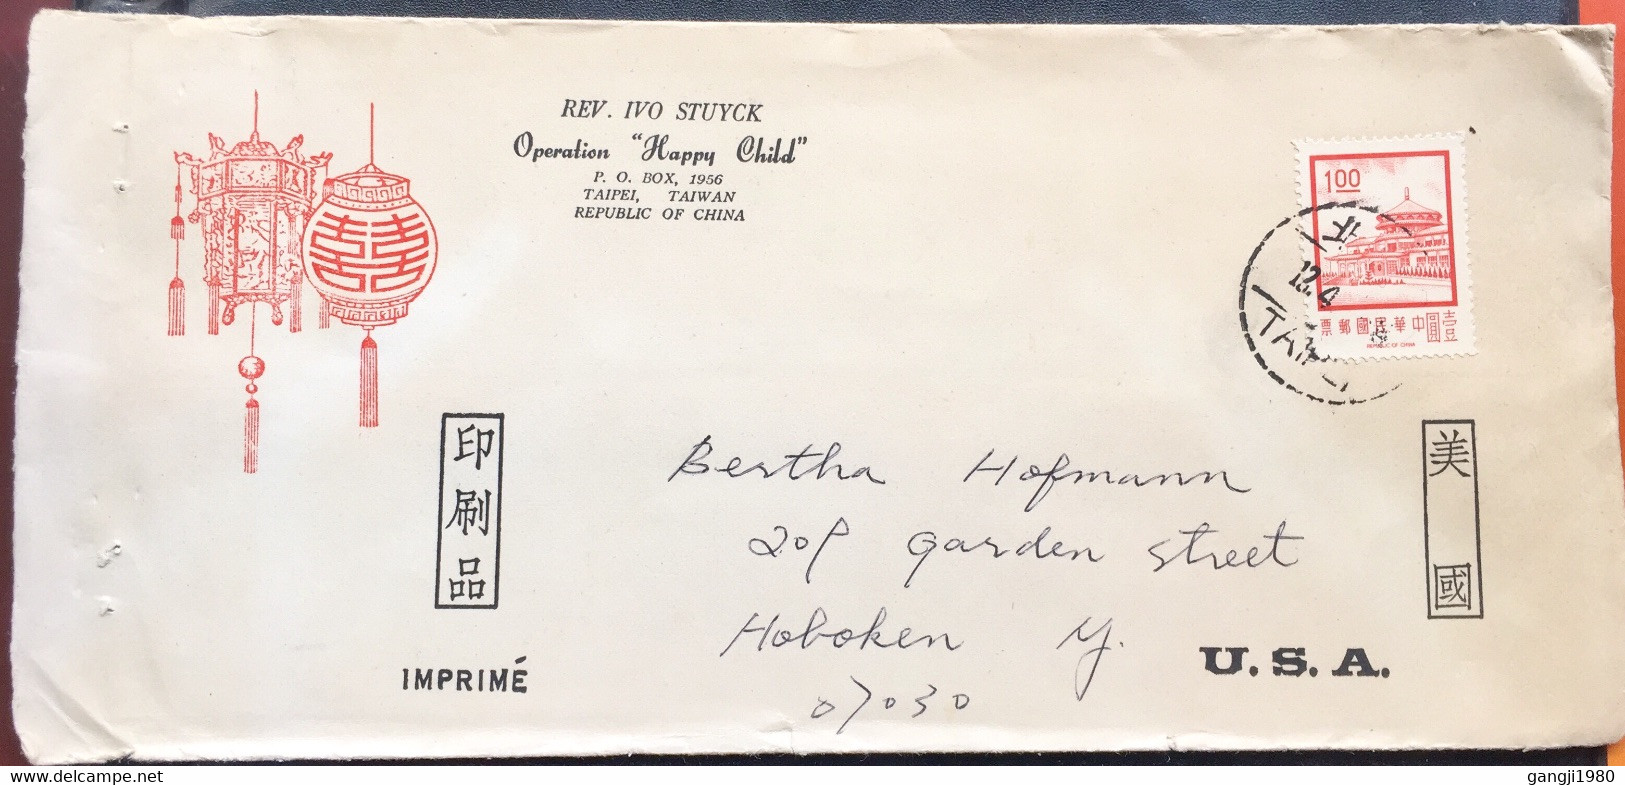 REV. IVO STUYCK
Operation "Happy Child"
P. O. BOX, 1956
TAIPEI, TAIWAN
REPUBLIC OF CHINA
1.00
票郵國民華中
壹圓
REPUBLIC OF CHINA
北
12.4
TAIPEI
印刷品
IMPRIMÉ
美國
Bertha Hofmann
209 Garden Street
Hoboken
07030
U.S.A.
gangji1980